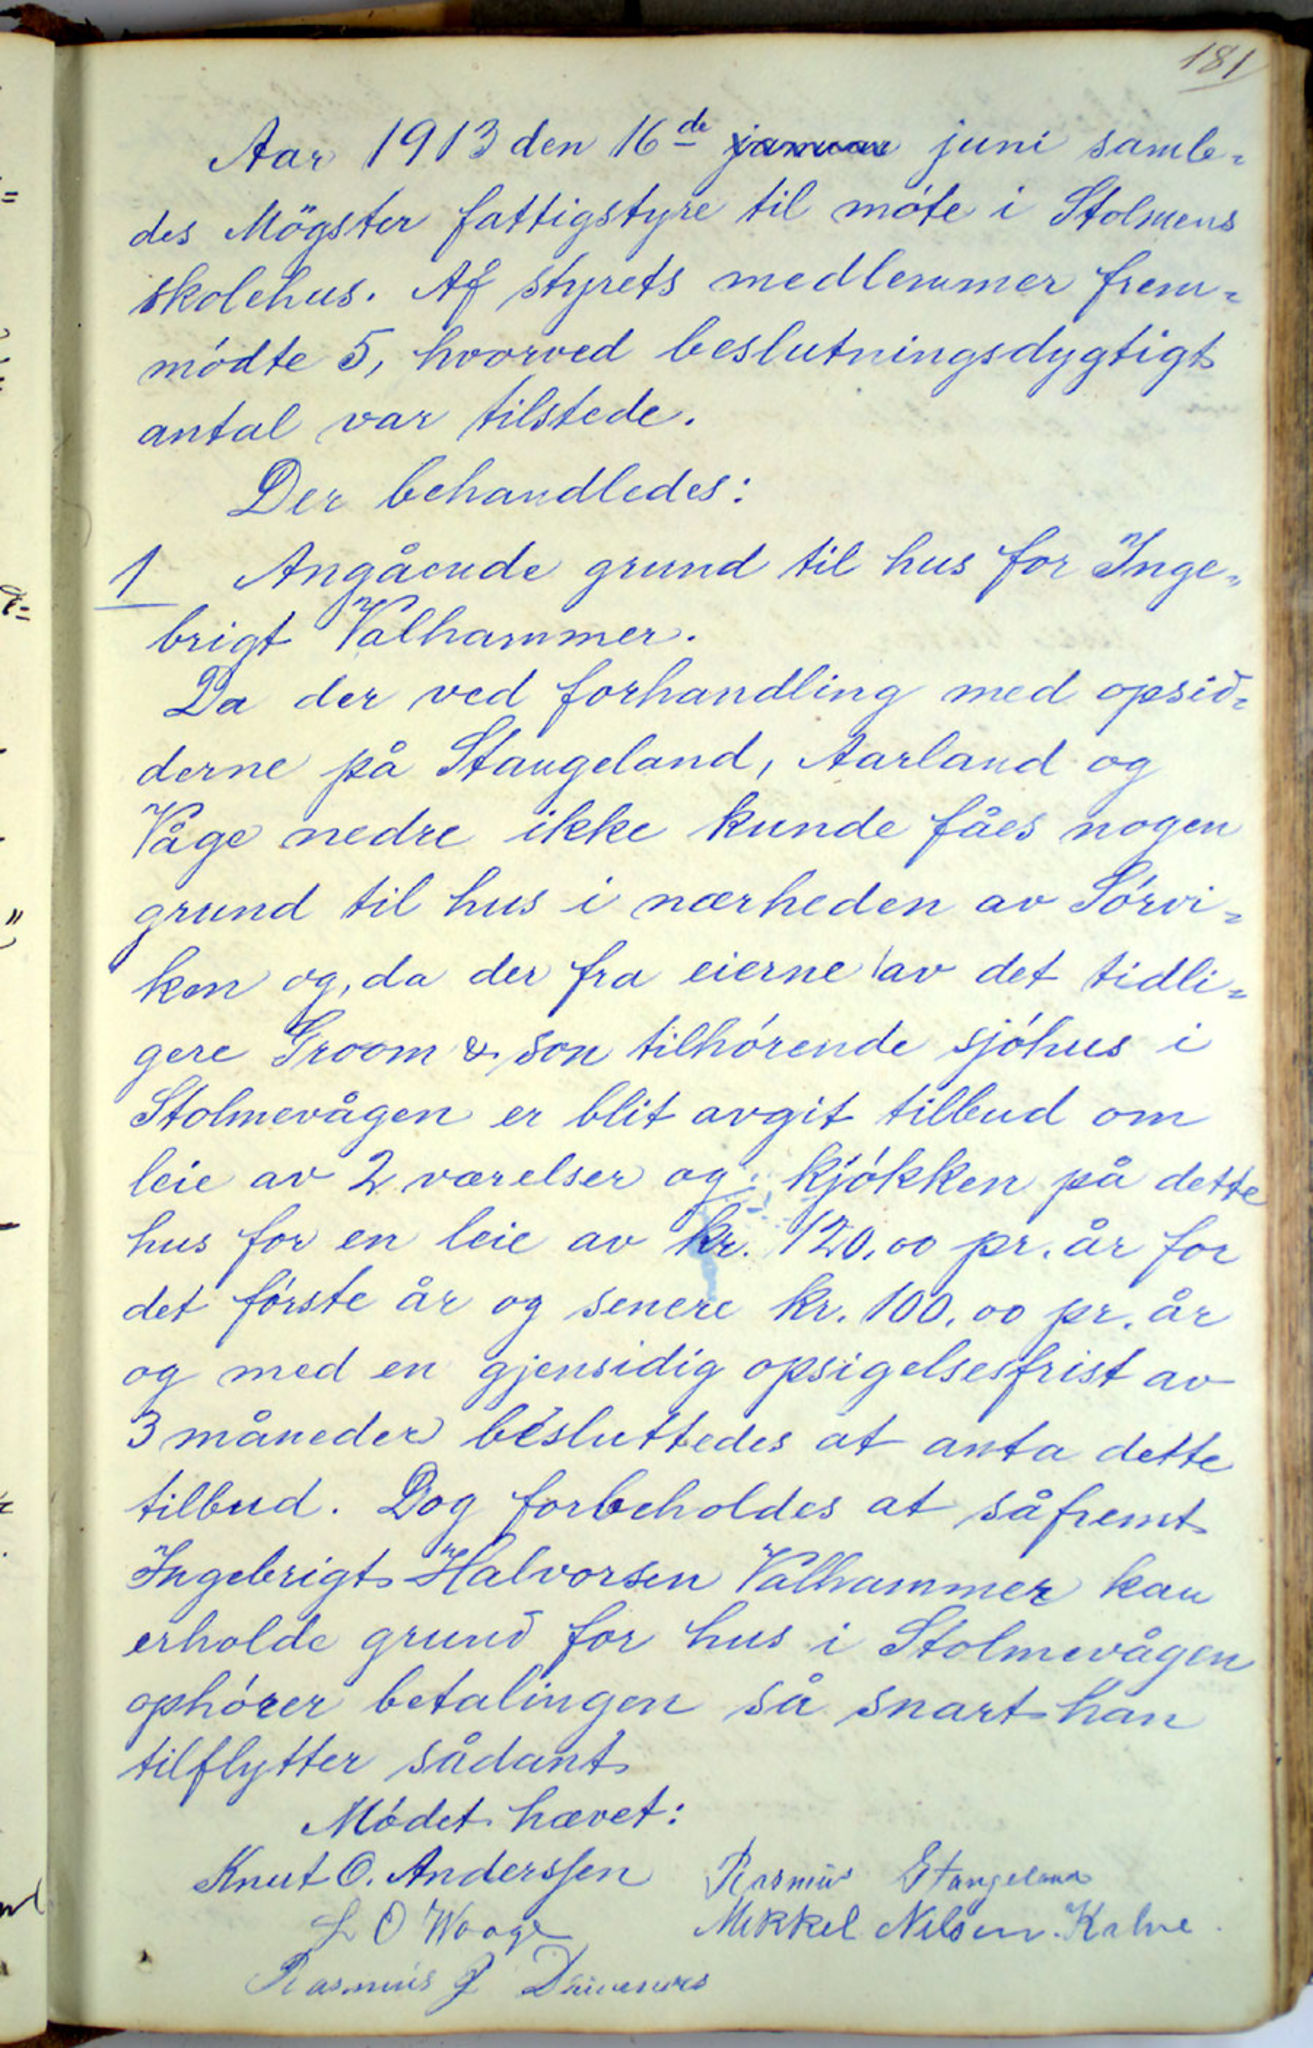 181
Aar 1913 den 16de januar juni samle=
des Mögster fattigstyre til móte i Stolmens
skolehus. Af styrets medlemmer frem=
módte 5, hvorved beslutningsdygtigt
antal var tilstede.
Der behandledes:
1 Angåcude grund til hus for Inge=
brigt Valhammer.
Da der ved forhandling med opsid=
derne på Stangeland, Aarland og
Våge nedre ikke kunde fåes nogen
grund til hus i nærheden av Sórvi=
ken og, da der fra eierne av det tidli=
gere Groom & son tilhórende sjóhus i
Stolmevågen er blit avgit tilbud om
leie av 2 værelser og kjókken på dette
hus for en leie av kr. 120,00 pr. år for
det fórste år og senere kr. 100,00 pr. år
og med en gjensidig opsigelsesfrist av
3 måneder besluttedes at anta dette
tilbud. Dog forbeholdes at såfremt
Ingebrigt Halvorsen Valhammer kan
erholde grund for hus i Stolmevågen
ophórer betalingen så snart han
tilflytter sådant
Módet hævet:
Knut O. Anderssen Rasmus Stangeland
L O Waage Mikkel Nilsen Kalve.
Rasmus J